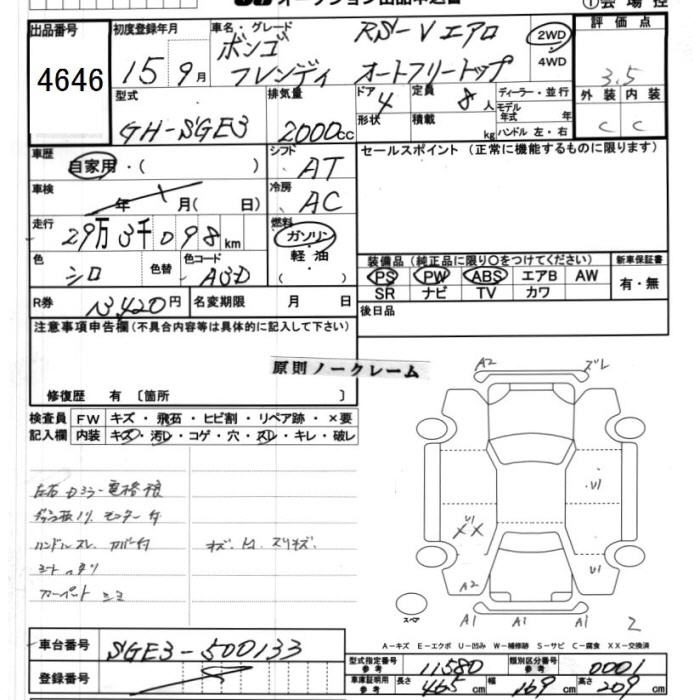 ①会場控
出品番号 初度登録年月 車名・グレード 評価点
4646 15 9月 ボンゴフレンディ RS-Vエアロ オートフリートップ 2WD 4WD 3.5
型式 排気量 ドア 4 形状 定員 8人 積載 kg ディーラー・並行 モデル年式 年 ハンドル 左・右 外装 内装
GH-SGE3 2000cc C C
車歴 自家用・( ) シフト AT セールスポイント (正常に機能するものに限ります)
車検 年 月( 日) 冷房 AC
走行 29万3千098km 燃料 ガソリン・軽油・( )
色 シロ 色替 色コード A3D
装備品 (純正品に限り○をつけてください) 新車保証書
PS PW ABS エアB AW 有・無
SR ナビ TV カワ
R券 13,420円 名変期限 月 日 後日品
注意事項申告欄 (不具合内容等は具体的に記入して下さい)
原則ノークレーム
修復歴 有 〔箇所 〕
検査員 FW キズ・飛石・ヒビ割・リペア跡・×要
記入欄 内装 キズ・汚レ・コゲ・穴・スレ・キレ・破レ
A2 ズレ
左右Dミラー電格
U1
U1 XX
ハンドルスレ カバー付 キズ・凹・スリキズ.
U1
A2
スペア A1 A1 A1
A-キズ E-エクボ U-凹み W-補修跡 S-サビ C-腐食 XX-交換済
車台番号 SGE3-500133
登録番号
型式指定番号 参考 11580 類別区分番号 参考 0001
車庫証明用 参考 長さ 465cm 幅 169cm 高さ 209cm